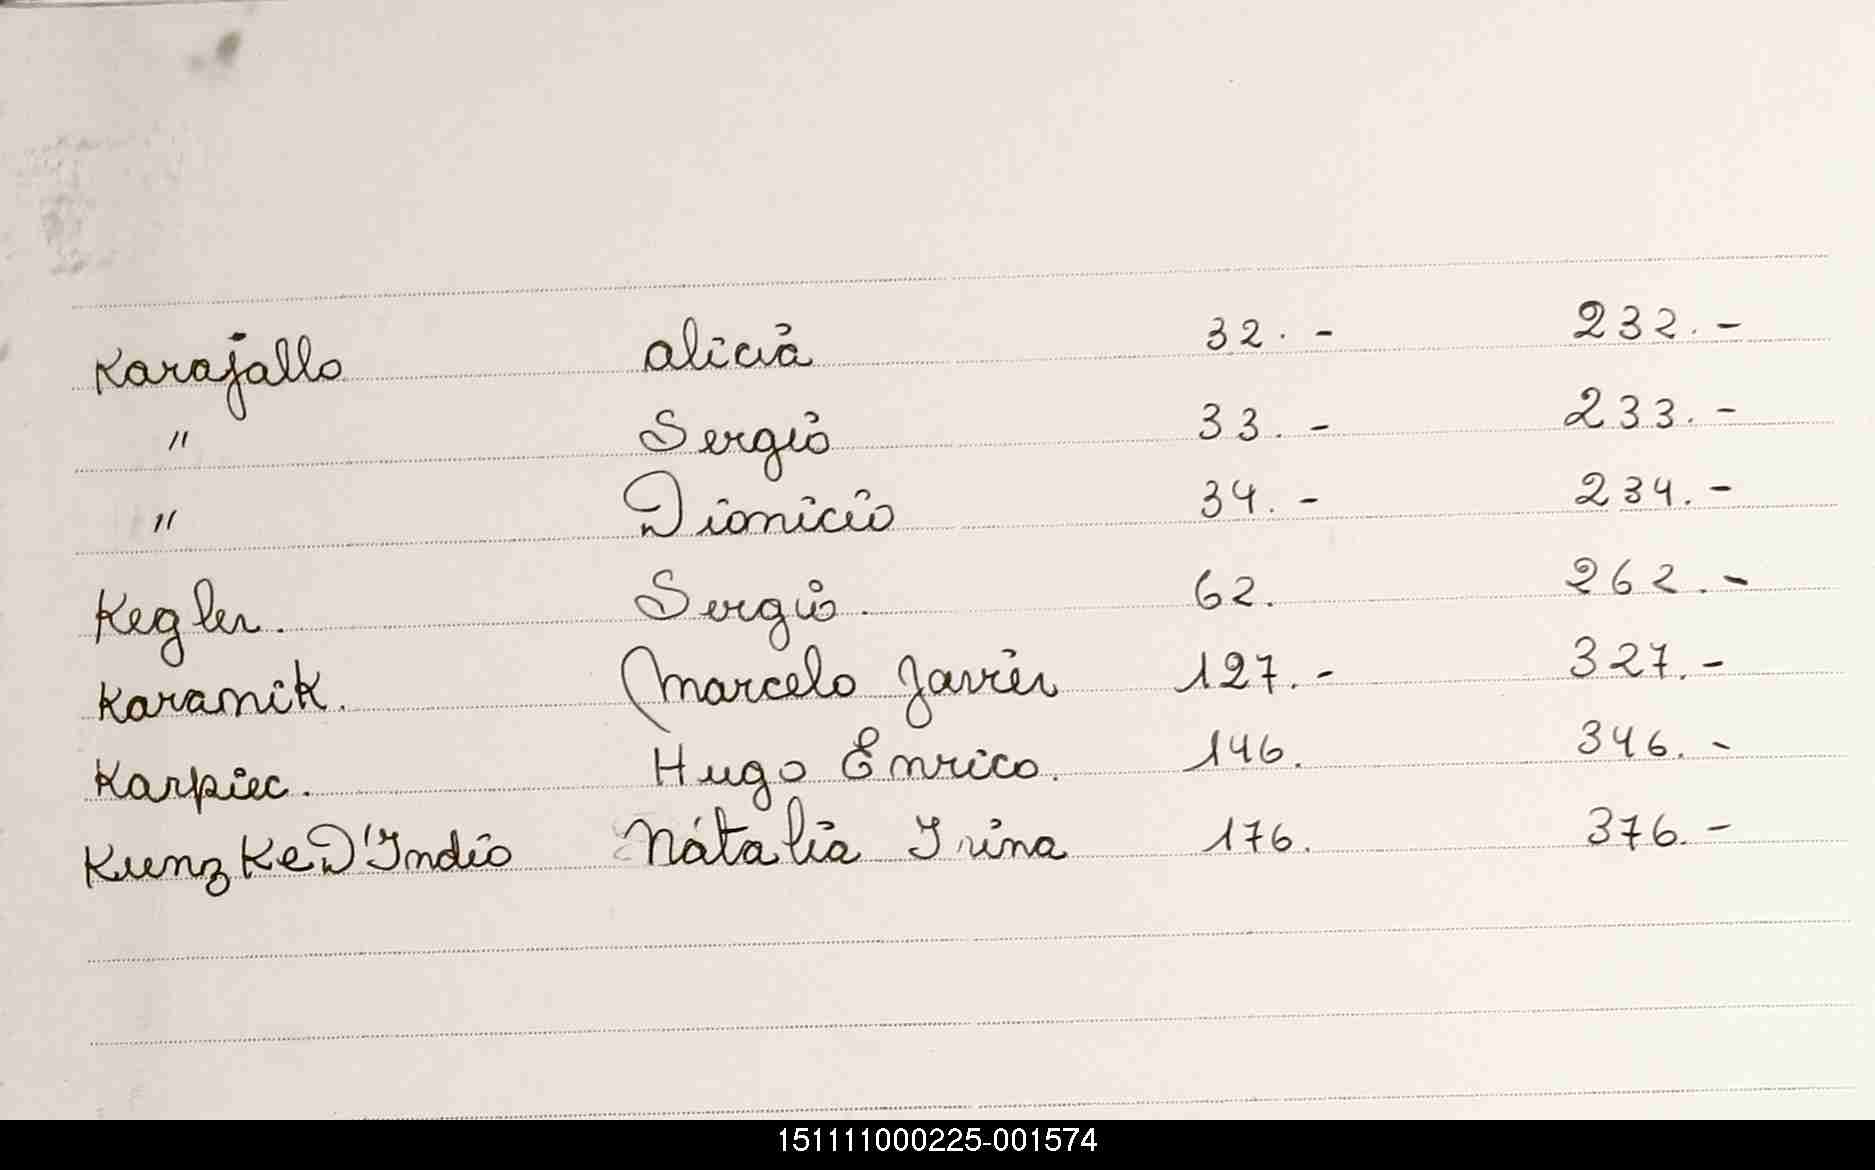 Karajallo alicia 32.- 232.-
" Sergio 33.- 233.-
" Dionicio 34.- 234.-
Kegler. Sergio. 62. 262.-
Karanik. Marcelo Javier 127.- 327.-
Karpiec. Hugo Enrico. 146. 346.-
KunzKeD'Indio Nátalia Irina 176. 376.-
151111000225-001574